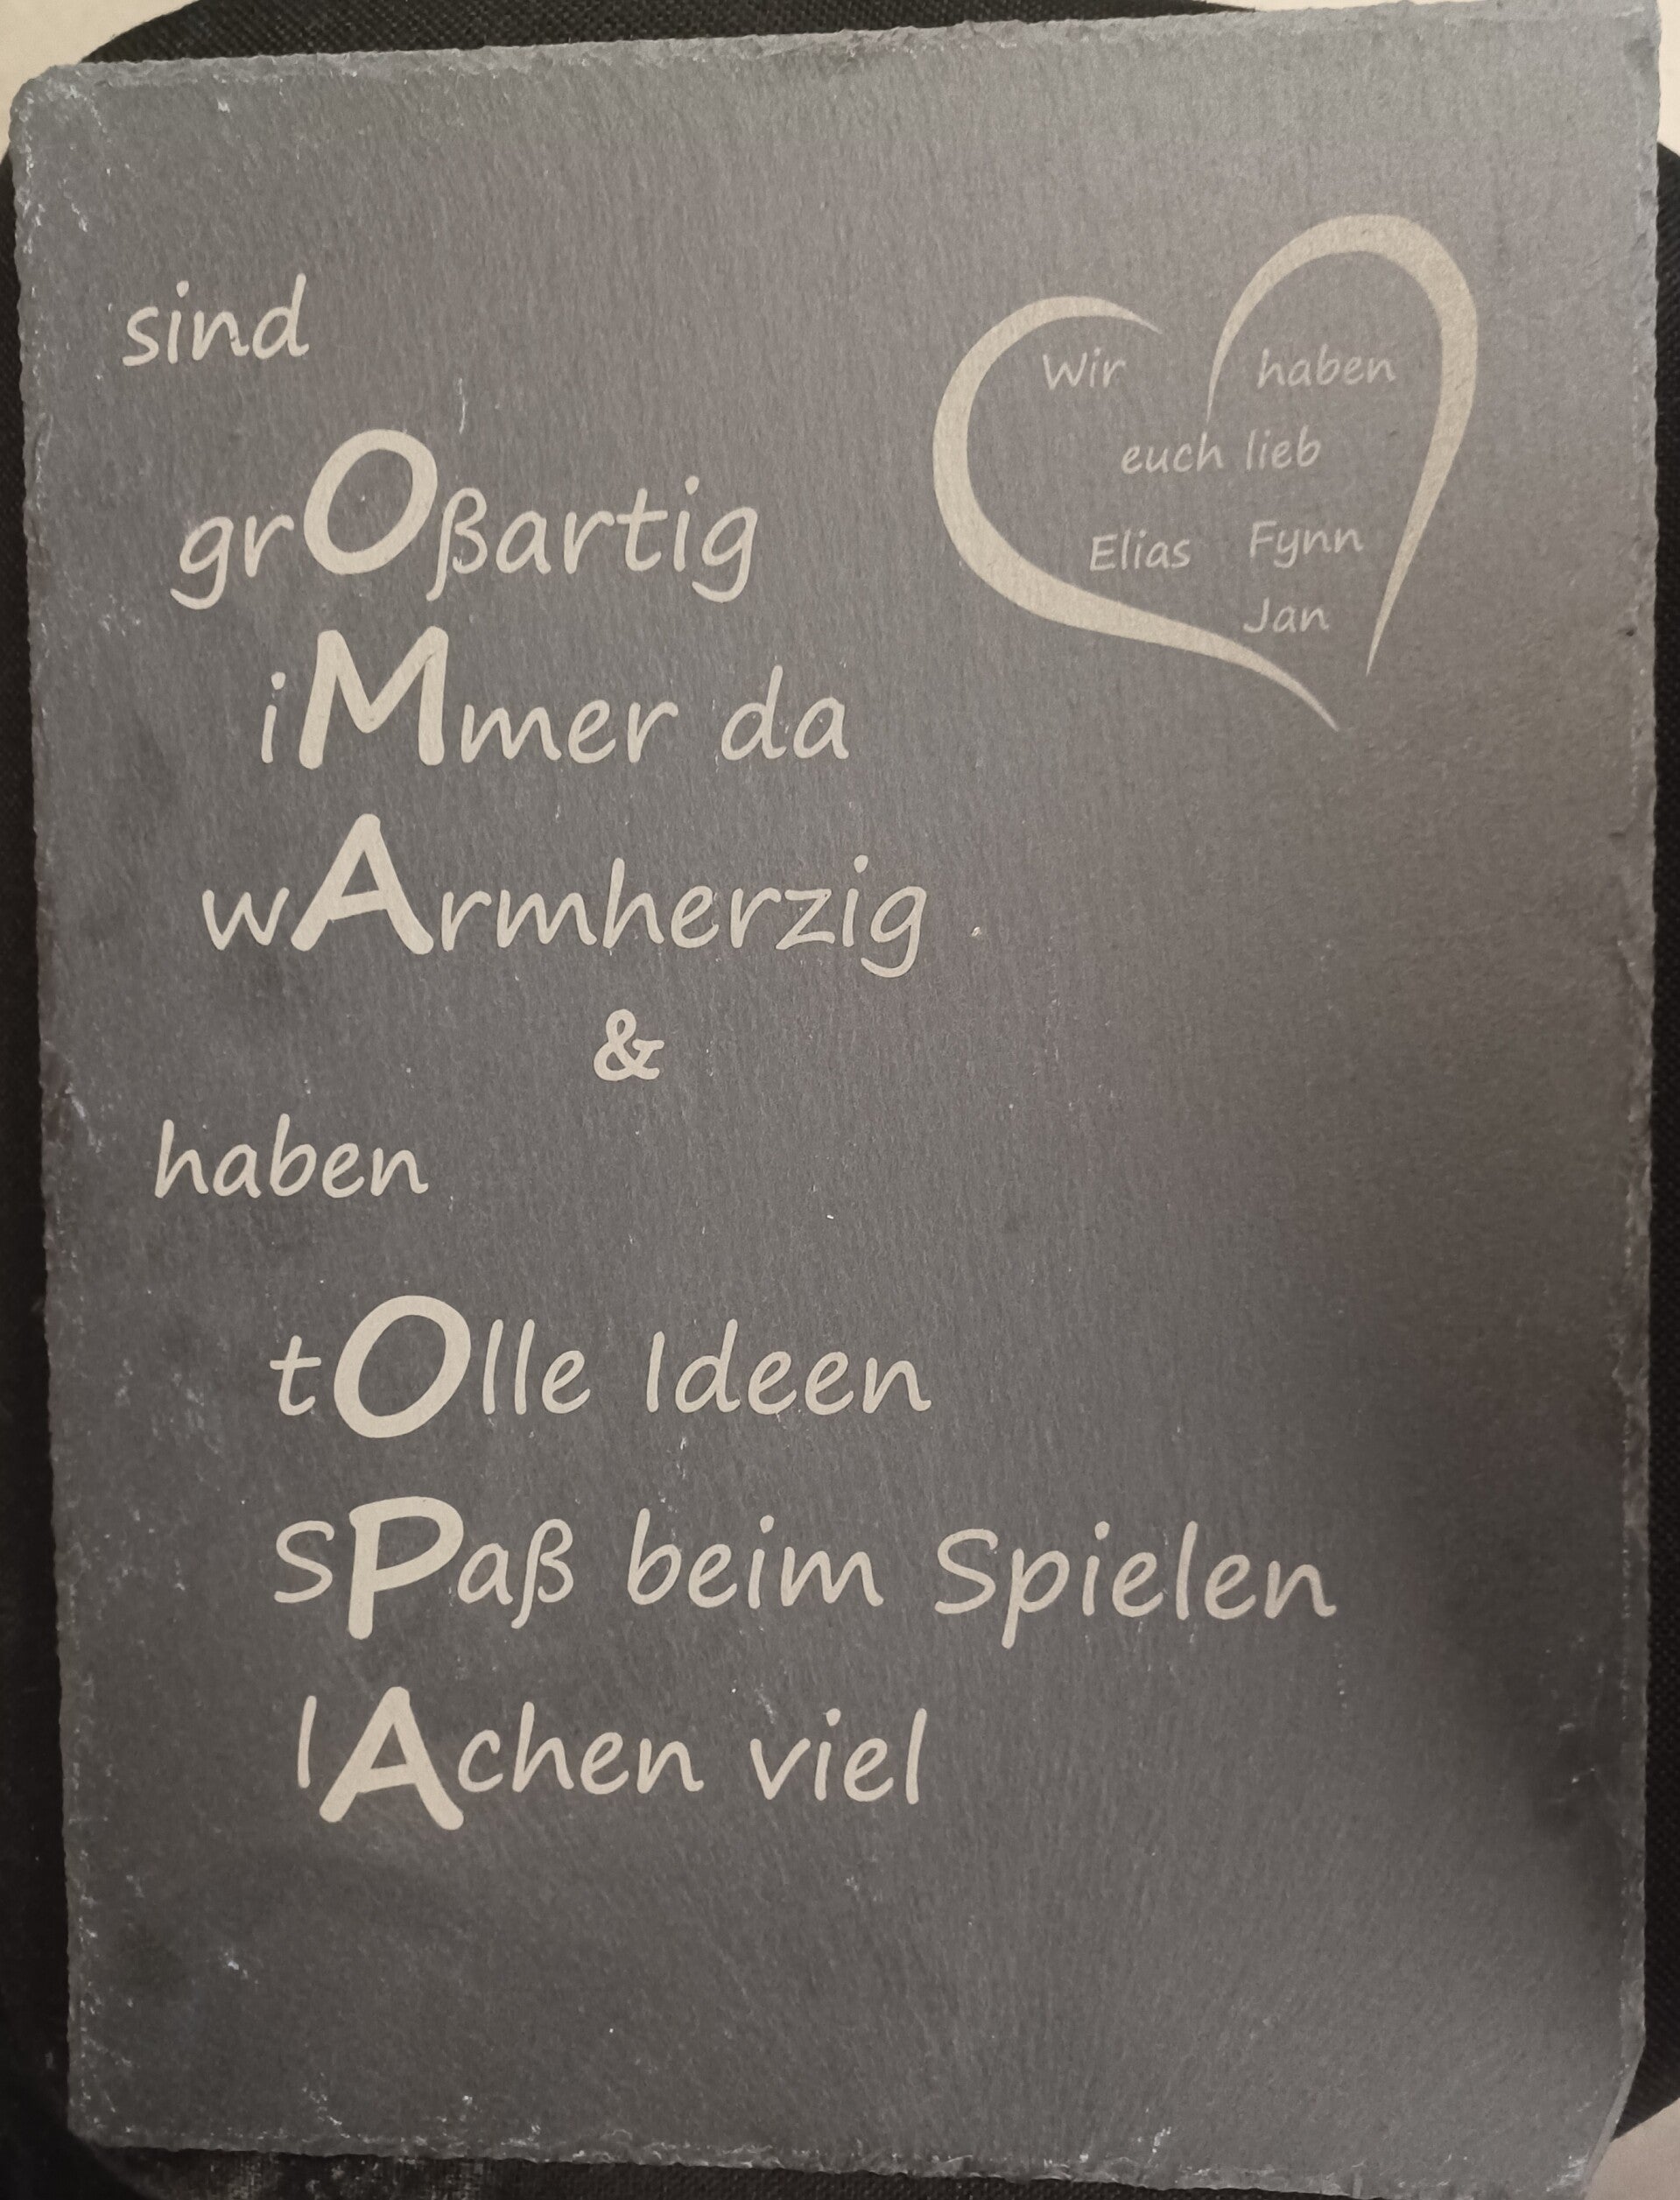 sind
grOßartig
iMmer da
wArmherzig
&
haben
tOlle Ideen
SPaß beim Spielen
lAchen viel
Wir haben
euch lieb
Elias Fynn
Jan